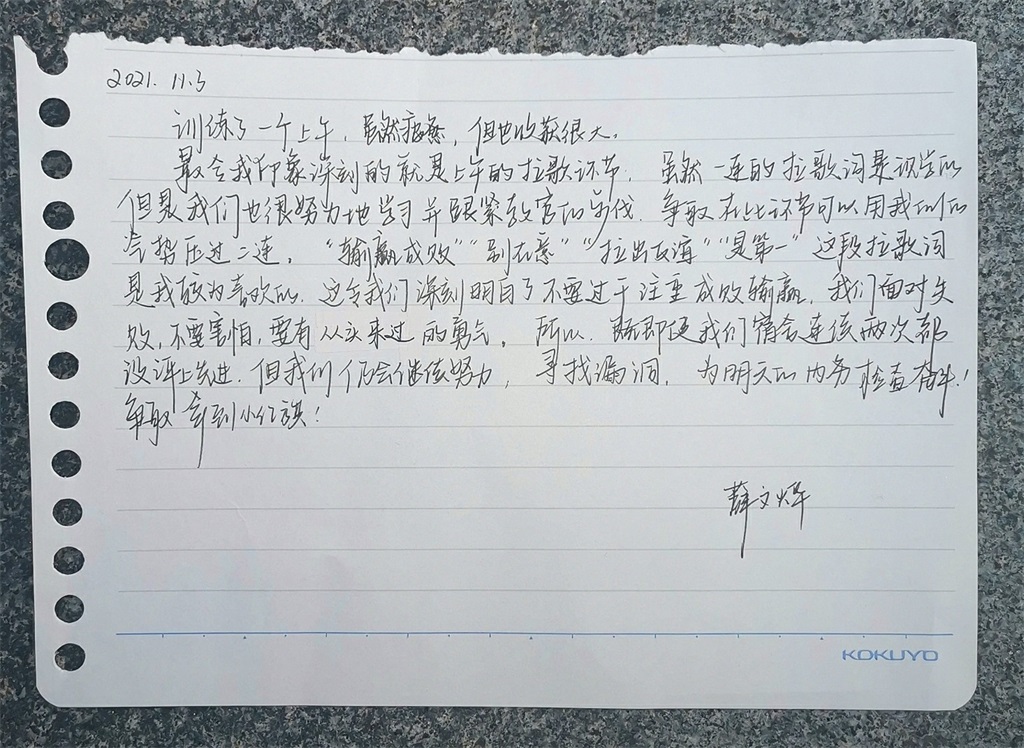 2021.11.3
训练了一个上午，虽然疲惫，但也收获很大。
最令我印象深刻的就是上午的拉歌环节，虽然一连的拉歌词是现学的
但是我们也很努力地学习并跟紧教官的步伐，争取在此环节可以用我们的
气势压过二连。“输赢成败”“别在意”“拉出友谊”“是第一”这段拉歌词
是我较为喜欢的，这令我们深刻明白了不要过于注重成败输赢，我们面对失
败，不要害怕，要有从头来过的勇气。所以，即便我们宿舍连续两次都
没评上先进，但我们仍会继续努力，寻找漏洞，为明天的内务检查奋斗！
争取拿到小红旗！
薛文烨
KOKUYO